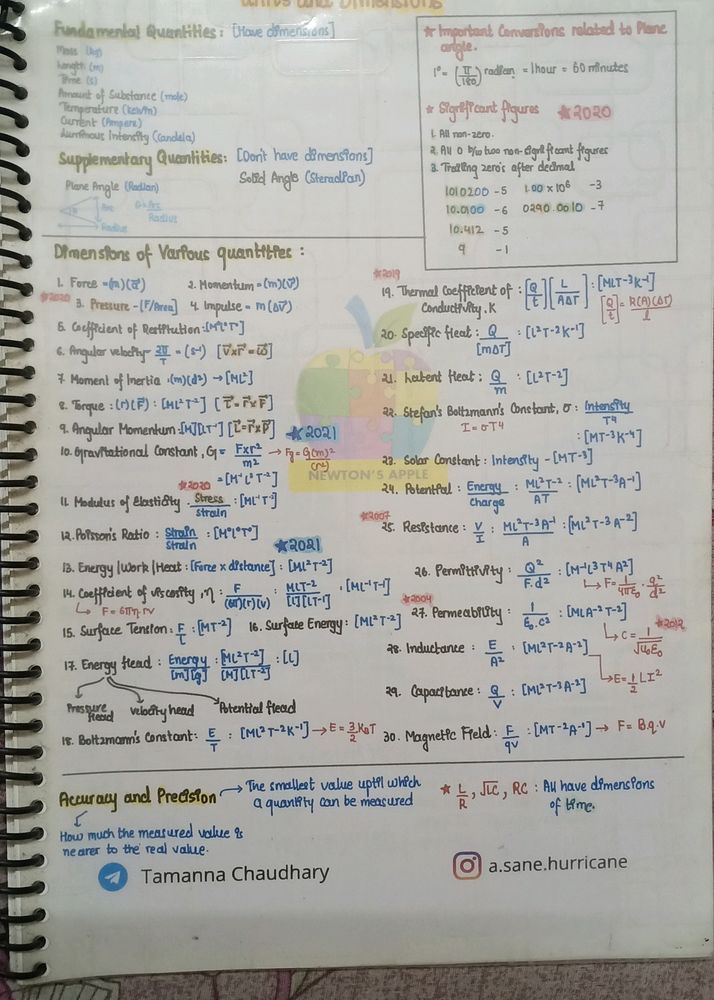 Units and Dimensions
Fundamental Quantities: [Have dimensions]
Mass (kg)
Length (m)
Time (s)
Amount of Substance (mole)
Temperature (Kelvin)
Current (Ampere)
Luminous Intensity (Candela)
Supplementary Quantities: [Don't have dimensions]
Plane Angle (Radian)
Solid Angle (Steradian)
Arc
Radius
θ = Arc/Radius
★ Important Conversions related to Plane angle.
1° = (π/180) radian = 1 hour = 60 minutes
★ Significant figures ★2020
1. All non-zero.
2. All 0 b/w two non-significant figures
3. Trailing zero's after decimal
1010200 - 5 1.00 x 10⁶ - 3
10.0100 - 6 0290.0010 - 7
10.412 - 5
9 - 1
Dimensions of Various quantities :
1. Force = (m)(a⃗) 2. Momentum = (m)(v⃗)
★2020 3. Pressure - [F/Area] 4. Impulse = m(Δv⃗)
5. Coefficient of Restitution : [M°L°T°]
6. Angular velocity - 2π/T = (s⁻¹) [v⃗ x r⃗ = ω⃗]
7. Moment of Inertia : (m)(d²) → [ML²]
8. Torque : (r)(F⃗) : [ML²T⁻²] [τ⃗ = r⃗ x F⃗]
9. Angular Momentum : [M][LT⁻¹] [L⃗ = r⃗ x P⃗] ★2021
10. Gravitational Constant, G = Fxr²/m² → Fg = G(m)²/(r²)
★2020 = [M⁻¹L³T⁻²]
11. Modulus of Elasticity : Stress/Strain : [ML⁻¹T⁻²]
12. Poisson's Ratio : Strain/Strain : [M°L°T°]
★2021
13. Energy/Work/Heat : [Force x distance] : [ML²T⁻²]
14. Coefficient of viscosity, η : F/(6π)(r)(v) : MLT⁻²/[L][LT⁻¹] : [ML⁻¹T⁻¹]
↳ F = 6πη.rv
15. Surface Tension : F/L : [MT⁻²] 16. Surface Energy : [ML²T⁻²]
17. Energy Head : Energy/[m][g] : [ML²T⁻²]/[M][LT⁻²] : [L]
Pressure Head Velocity head Potential Head
18. Boltzmann's Constant : E/T : [ML²T⁻²K⁻¹] → E = 3/2 KBT
★2019
19. Thermal Coefficient of Conductivity, K : [Q/t][L/AΔT] : [MLT⁻³K⁻¹]
[Q/t] = K(A)(ΔT)/l
20. Specific Heat : Q/[mΔT] : [L²T⁻²K⁻¹]
21. Latent Heat : Q/m : [L²T⁻²]
22. Stefan's Boltzmann's Constant, σ : Intensity/T⁴
I = σT⁴ : [MT⁻³K⁻⁴]
23. Solar Constant : Intensity - [MT⁻³]
24. Potential : Energy/Charge : ML²T⁻²/AT : [ML²T⁻³A⁻¹]
★2007
25. Resistance : V/I : ML²T⁻³A⁻¹/A : [ML²T⁻³A⁻²]
26. Permittivity : Q²/F.d² : [M⁻¹L³T⁴A²]
↳ F = 1/4πε₀ . q²/d²
★2004
27. Permeability : 1/ε₀.c² : [MLA⁻²T⁻²]
↳ C = 1/√μ₀ε₀ ★2012
28. Inductance : E/A² : [ML²T⁻²A⁻²]
↳ E = 1/2 LI²
29. Capacitance : Q/V : [ML²T⁻³A⁻²]
30. Magnetic Field : F/qv : [MT⁻²A⁻¹] → F = B.q.v
NEWTON'S APPLE
Accuracy and Precision → The smallest value uptil which a quantity can be measured
How much the measured value is nearer to the real value.
★ L/R, √LC, RC : All have dimensions of time.
Tamanna Chaudhary
a.sane.hurricane